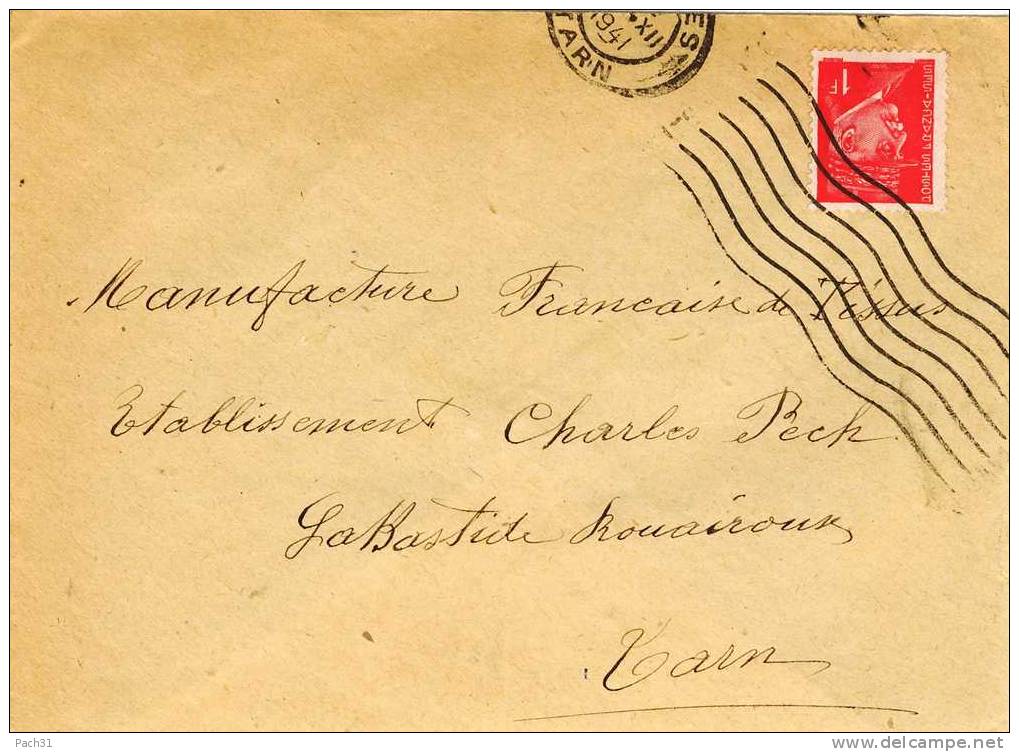 1941
XII
TARN
1F
POSTES FRANÇAISES
Manufacture Francaise de Tissus
Etablissement Charles Pech
LaBastide Rouairoux
Tarn
Pach31
www.delcampe.net